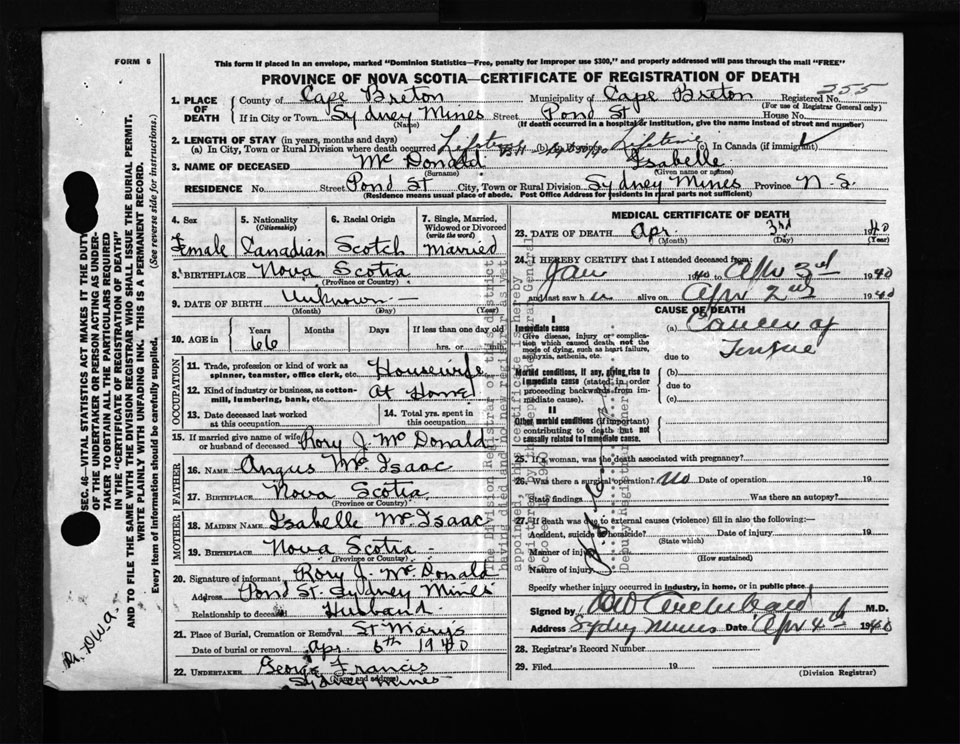 FORM 6
This form if placed in an envelope, marked "Dominion Statistics—Free, penalty for improper use $300," and properly addressed will pass through the mail "FREE"
PROVINCE OF NOVA SCOTIA—CERTIFICATE OF REGISTRATION OF DEATH
355
1. PLACE OF DEATH { County of Cape Breton Municipality of Cape Breton Registered No.
(For use of Registrar General only)
If in City or Town Sydney Mines Street Pond St House No.
(Name) (If death occurred in a hospital or institution, give the name instead of street and number)
2. LENGTH OF STAY (in years, months and days)
(a) In City, Town or Rural Division where death occurred Lifetime (b) Lifetime (c) In Canada (if immigrant)
3. NAME OF DECEASED Mc Donald Isabelle
(Surname) (Given name or names)
RESIDENCE No. Street Pond St City, Town or Rural Division Sydney Mines Province N. S.
(Residence means usual place of abode. Post Office Address for residents in rural parts not sufficient)
4. Sex
Female
5. Nationality
(Citizenship)
Canadian
6. Racial Origin
Scotch
7. Single, Married, Widowed or Divorced
(write the word)
Married
8. BIRTHPLACE Nova Scotia
(Province or Country)
9. DATE OF BIRTH Unknown —
(Month) (Day) (Year)
10. AGE in { Years Months Days If less than one day old
66 hrs. or min.
OCCUPATION
11. Trade, profession or kind of work as spinner, teamster, office clerk, etc. Housewife
12. Kind of industry or business, as cotton-mill, lumbering, bank, etc. At Home
13. Date deceased last worked at this occupation
14. Total yrs. spent in this occupation
15. If married give name of wife or husband of deceased Rory J. Mc Donald
FATHER
16. NAME Angus Mc Isaac
17. BIRTHPLACE Nova Scotia
(Province or Country)
MOTHER
18. MAIDEN NAME Isabelle Mc Isaac
19. BIRTHPLACE Nova Scotia
(Province or Country)
20. Signature of informant Rory J. Mc Donald
Address Pond St. Sydney Mines
Relationship to deceased Husband
21. Place of Burial, Cremation or Removal St Mary's
Date of burial or removal Apr. 6th 1940
22. UNDERTAKER George Francis
(Name and address)
Sydney Mines
MEDICAL CERTIFICATE OF DEATH
23. DATE OF DEATH Apr. 3rd 1940
(Month) (Day) (Year)
24. I HEREBY CERTIFY that I attended deceased from:
Jan 1940 to Apr 3rd 1940
and last saw her alive on Apr 2nd 1940
CAUSE OF DEATH
I
Immediate cause
Give disease, injury or complication which caused death, not the mode of dying, such as heart failure, asphyxia, asthenia, etc.
(a) Cancer of
Tongue
due to
Morbid conditions, if any, giving rise to immediate cause (stated in order proceeding backwards from immediate cause).
(b)
due to
(c)
II
Other morbid conditions (if important) contributing to death but not causally related to immediate cause.
25. If a woman, was the death associated with pregnancy?
26. Was there a surgical operation? No Date of operation 19
State findings Was there an autopsy?
27. If death was due to external causes (violence) fill in also the following:—
Accident, suicide or homicide? Date of injury 19
(State which)
Manner of injury
(How sustained)
Nature of injury
Specify whether injury occurred in industry, in home, or in public place
Signed by M.D.
Address Sydney Mines Date Apr 4th 1940
28. Registrar's Record Number
29. Filed 19
(Division Registrar)
SEC. 46—VITAL STATISTICS ACT MAKES IT THE DUTY
OF THE UNDERTAKER OR PERSON ACTING AS UNDER-
TAKER TO OBTAIN ALL THE PARTICULARS REQUIRED
IN THE "CERTIFICATE OF REGISTRATION OF DEATH"
AND TO FILE THE SAME WITH THE DIVISION REGISTRAR WHO SHALL ISSUE THE BURIAL PERMIT.
WRITE PLAINLY WITH UNFADING INK. THIS IS A PERMANENT RECORD.
Every item of information should be carefully supplied. (See reverse side for instructions.)
The Division Registrar of this district
having died and his new registrar as yet
appointed, this certificate is hereby
Deputy Registrar General